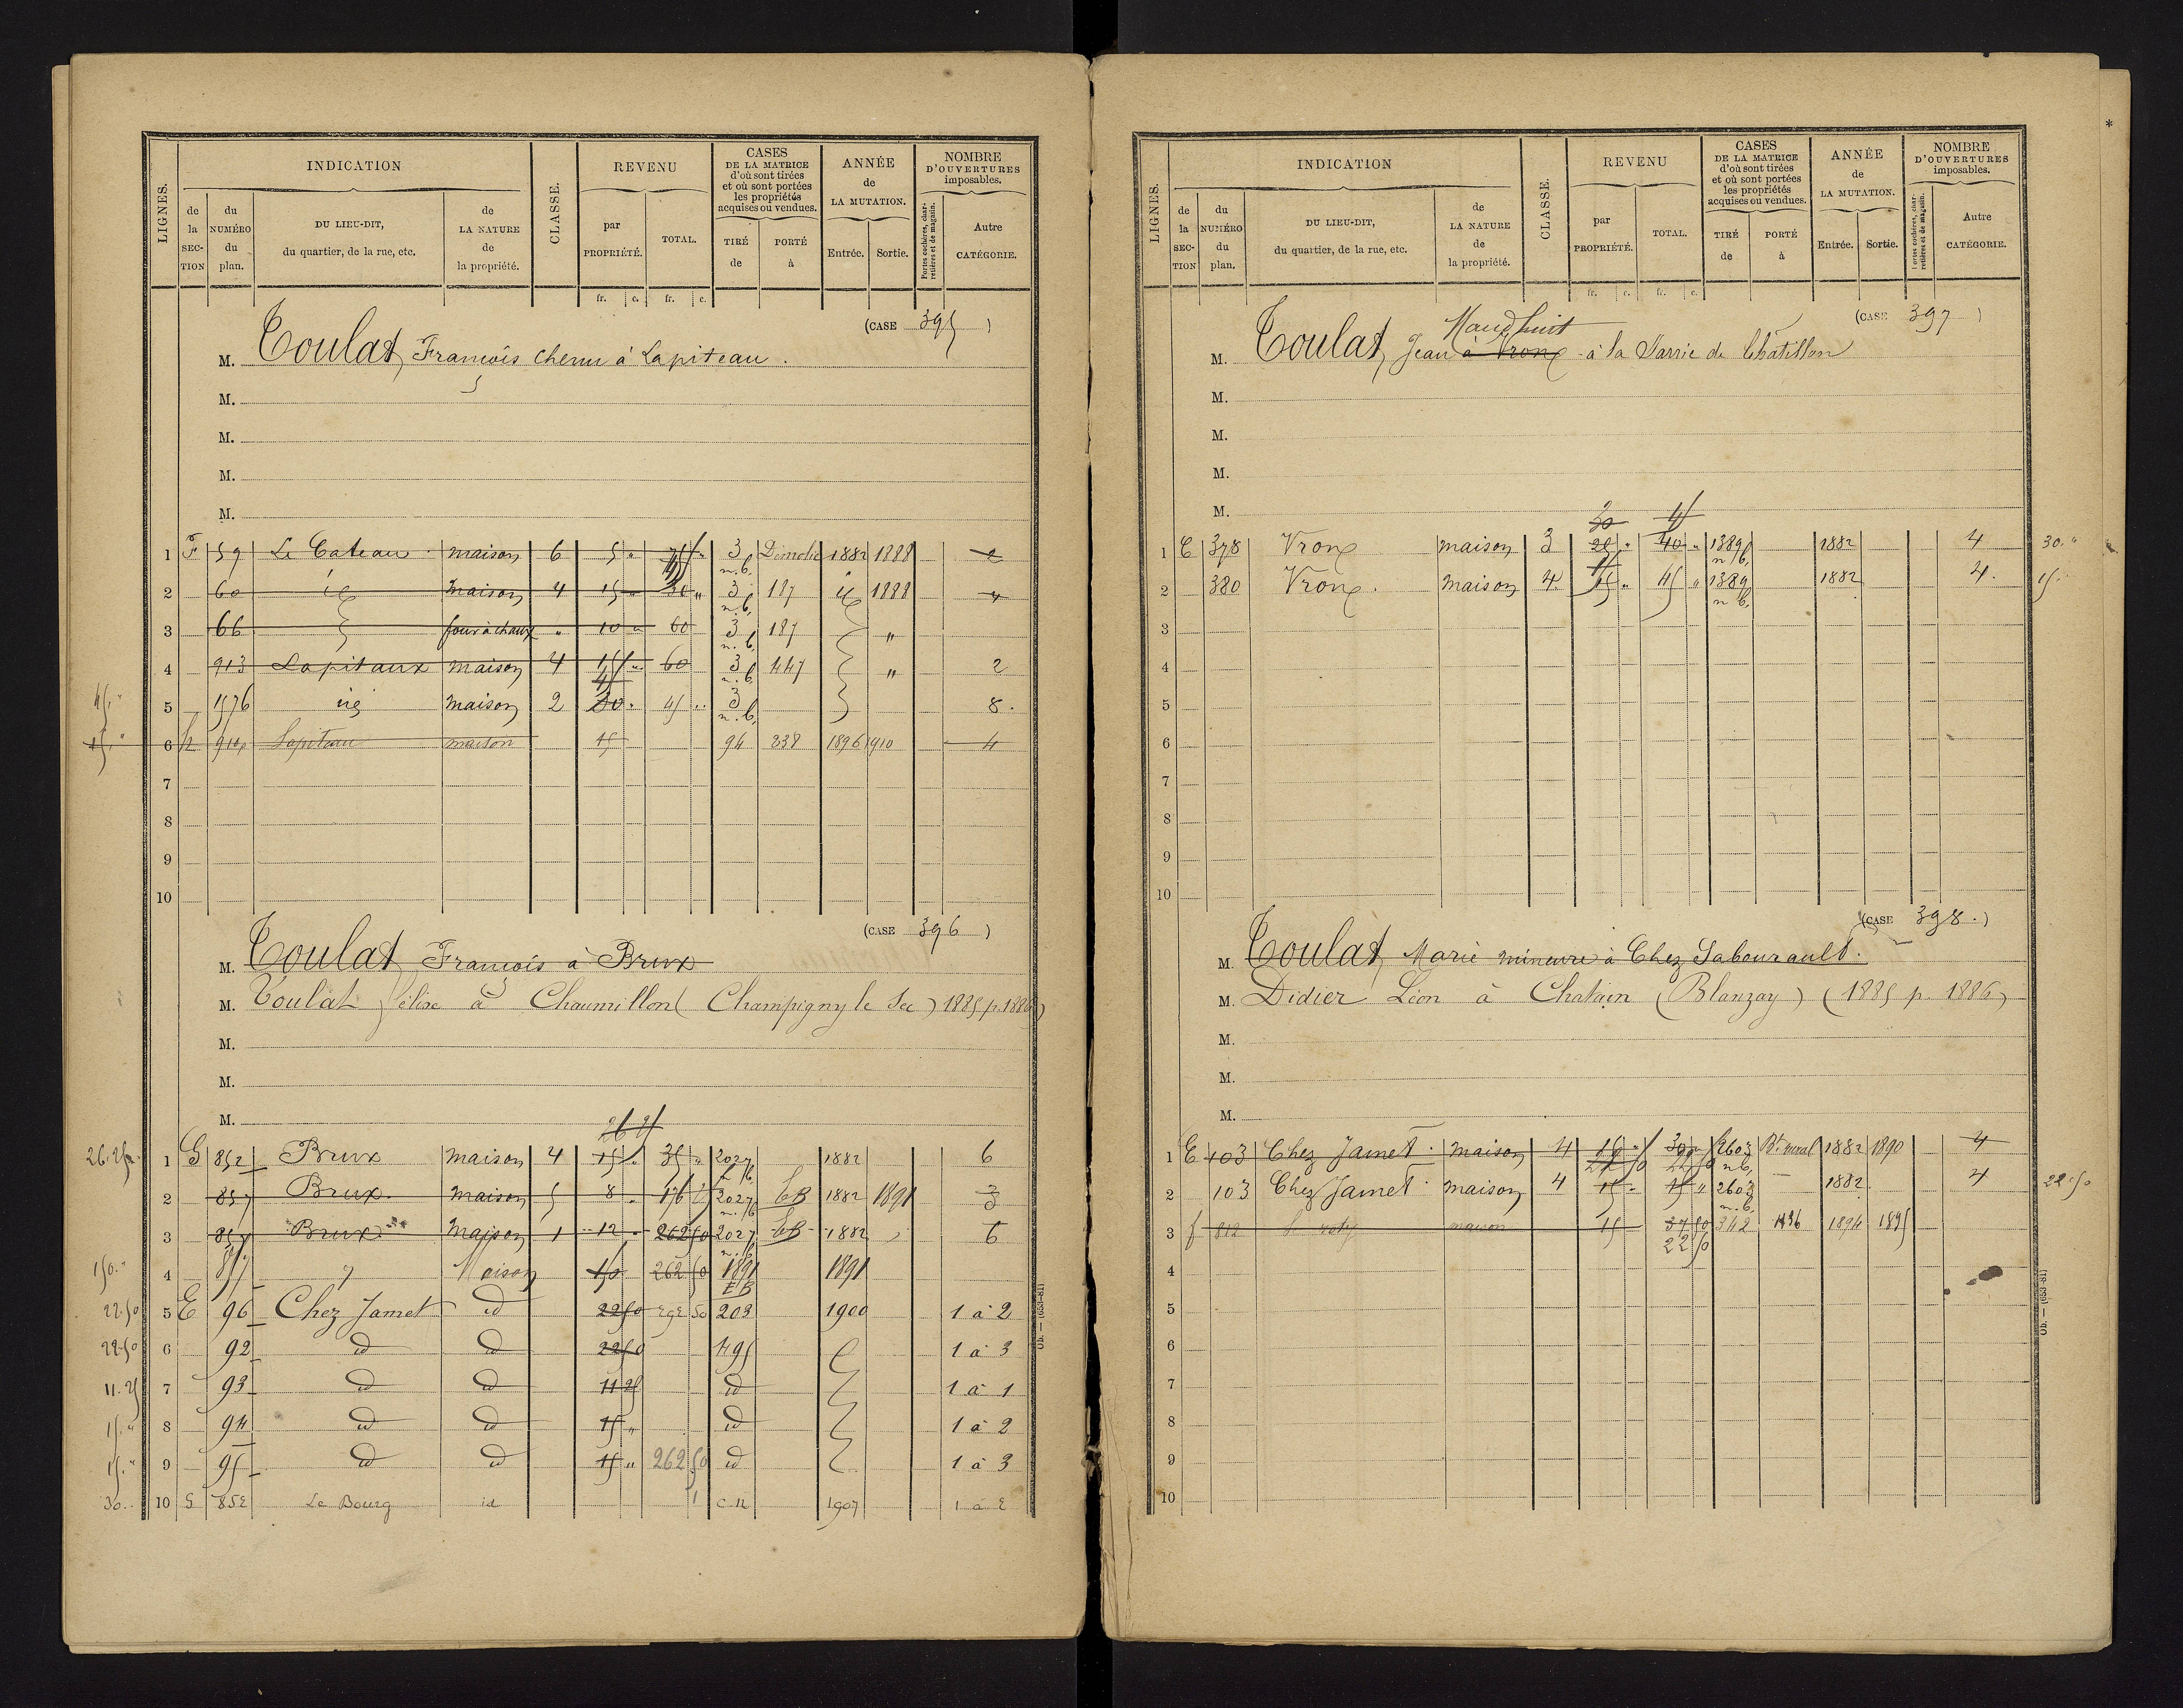 LIGNES. INDICATION CLASSE. REVENU CASES DE LA MATRICE d'où sont tirées et où sont portées les propriétés acquises ou vendues. ANNÉE de LA MUTATION. NOMBRE D'OUVERTURES imposables.
de la SECTION du NUMÉRO du plan. DU LIEU-DIT, du quartier, de la rue, etc. de LA NATURE de la propriété. par PROPRIÉTÉ. TOTAL. TIRÉ de PORTÉ à Entrée. Sortie. Portes cochères, charretières et de magasin. Autre CATÉGORIE.
fr. c. fr. c.
(CASE 395)
M. Toulat François chenu à Lapiteau.
M.
M.
M.
M.
1 F 59 Le Cateau maison 6 5 " 3 n.b. Démolie 1882 1888 2
2 60 id maison 4 15 " 30 " 3 n.b. 187 id 1888 4
3 66 four à chaux " 10 " 60 3 n.b. 187 "
4 913 Lapitaux maison 4 15 " 60 3 n.b. 447 " 2
45 " 5 1576 id maison 2 30 " 45 " 3 n.b. 8.
15 " 6 h 914 Lapiteau maison 15 94 238 1896 1910 4
7
8
9
10
(CASE 396)
M. Toulat François à Brux
M. Toulat élise à Chaumillon (Champigny le Sec) 1885 p. 1886)
M.
M.
M.
26 25
26.25 1 G 852 Brux maison 4 15 " 35 " 2027 n.b. 1882 6
2 857 Brux. maison 5 8 " 176 2027 n.b. EB 1882 1891 3
3 857 Brux maison 1 12 " 262 50 2027 n.b. EB 1882 " 6
150. " 4 857 " Maison 150 262 50 1891 EB 1891
22.50 5 E 96 Chez Jamet id 22 50 292 50 203 1900 1 à 2
22.50 6 92 id id 22 50 495 1 à 3
11.25 7 93 id id 11 25 id 1 à 1
15. " 8 94 id id 15 " id 1 à 2
15. " 9 95 id id 15 " 262 50 id 1 à 3
30.. 10 G 852 Le Bourg id c.n 1907 1 à 2
Ob. — (653-81)
LIGNES. INDICATION CLASSE. REVENU CASES DE LA MATRICE d'où sont tirées et où sont portées les propriétés acquises ou vendues. ANNÉE de LA MUTATION. NOMBRE D'OUVERTURES imposables.
de la SECTION du NUMÉRO du plan. DU LIEU-DIT, du quartier, de la rue, etc. de LA NATURE de la propriété. par PROPRIÉTÉ. TOTAL. TIRÉ de PORTÉ à Entrée. Sortie. Portes cochères, charretières et de magasin. Autre CATÉGORIE.
fr. c. fr. c.
(CASE 397)
Maudhuit
M. Toulat, Jean à Vronx à la Jarrie de Chatillon
M.
M.
M.
M.
30 45
1 E 378 Vronx maison 3 25 " 40 " 1389 n.b. 1882 4 30. "
2 380 Vronx. maison 4 15 " 15 " 1389 n.b. 1882 4. 15. "
3
4
5
6
7
8
9
10
(CASE 398.)
M. Toulat, Marie mineure à Chez Sabourault.
M. Didier Léon à Chatain (Blanzay) (1885 p. 1886)
M.
M.
M.
1 E 103 Chez Jamet. maison 4 15 " 30 " 2603 n.b. Bt. rural 1882 1890 4
22 50 22 50
2 103 Chez Jamet. maison 4 15 " 15 " 2603 n.b. 1882 4 22.50
3 f 812 maison 15 37 50 342 1894 1895
22 50
4
5
6
7
8
9
10
Ob. — (653-81)